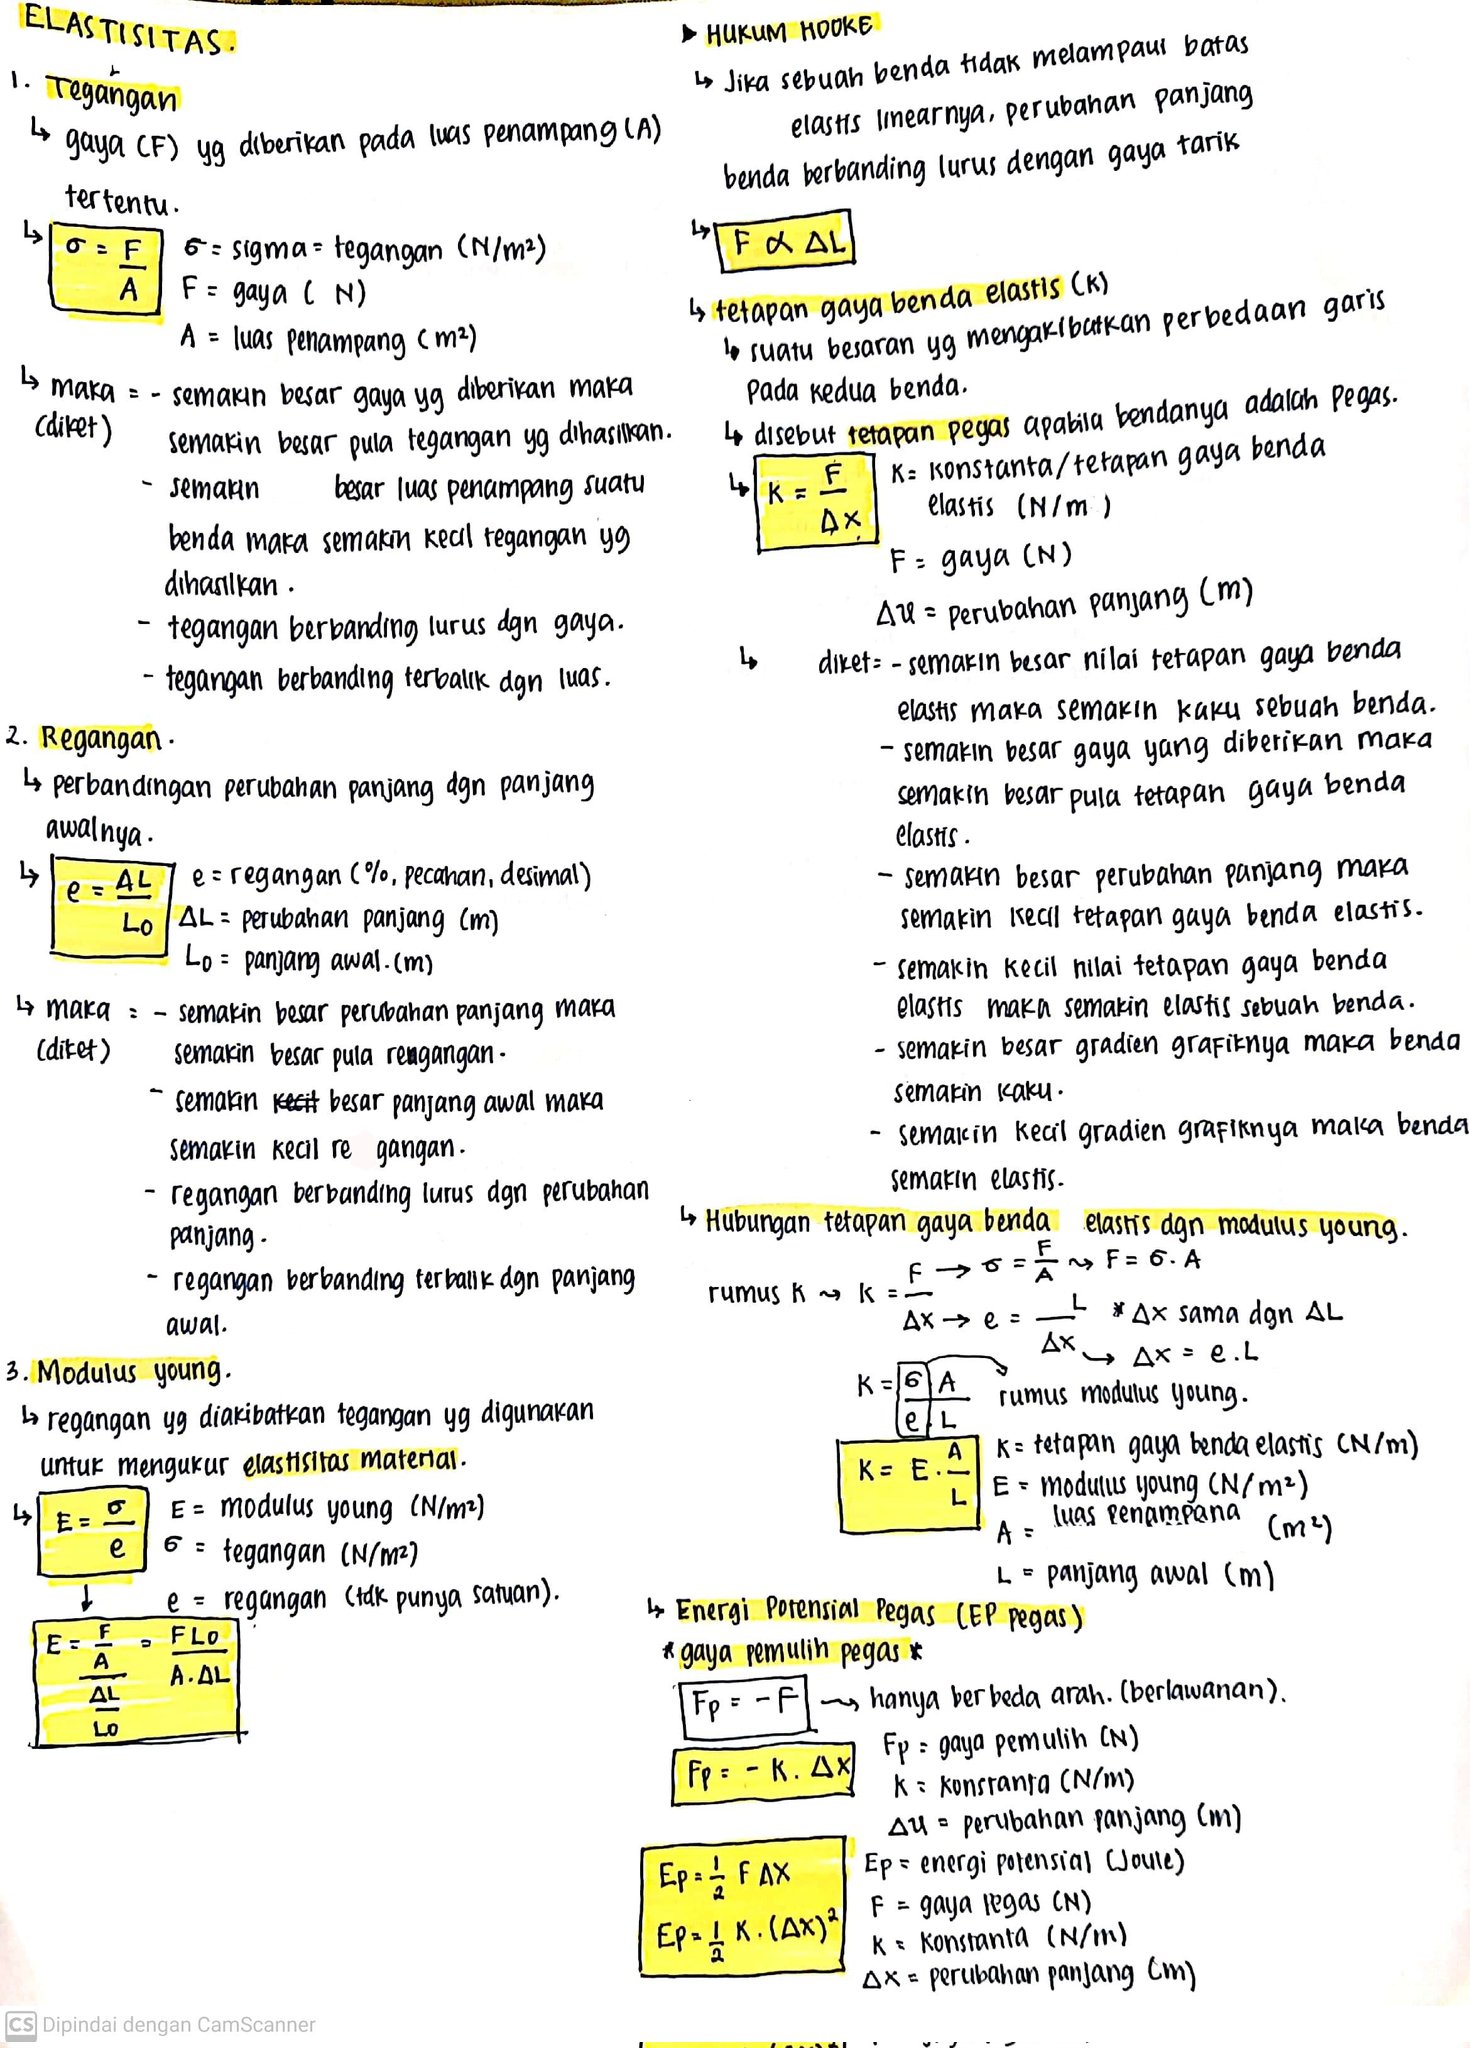 ELASTISITAS.
1. Tegangan
↳ gaya (F) yg diberikan pada luas penampang (A)
tertentu.
↳ σ = F/A
σ = sigma = tegangan (N/m²)
F = gaya ( N)
A = luas penampang (m²)
↳ maka = - semakin besar gaya yg diberikan maka
(diket) semakin besar pula tegangan yg dihasilkan.
- semakin besar luas penampang suatu
benda maka semakin kecil tegangan yg
dihasilkan.
- tegangan berbanding lurus dgn gaya.
- tegangan berbanding terbalik dgn luas.
2. Regangan.
↳ perbandingan perubahan panjang dgn panjang
awalnya.
↳ e = ΔL/Lo
e = regangan (%, pecahan, desimal)
ΔL = perubahan panjang (m)
Lo = panjang awal. (m)
↳ maka = - semakin besar perubahan panjang maka
(diket) semakin besar pula rengangan.
- semakin kecil besar panjang awal maka
semakin kecil re gangan.
- regangan berbanding lurus dgn perubahan
panjang.
- regangan berbanding terbalik dgn panjang
awal.
3. Modulus young.
↳ regangan yg diakibatkan tegangan yg digunakan
untuk mengukur elastisitas material.
↳ E = σ/e
E = modulus young (N/m²)
σ = tegangan (N/m²)
e = regangan (tdk punya satuan).
↓
E = F/A / ΔL/Lo = FLo/A.ΔL
▶ HUKUM HOOKE
↳ Jika sebuah benda tidak melampaui batas
elastis linearnya, perubahan panjang
benda berbanding lurus dengan gaya tarik
↳ F ∝ ΔL
↳ tetapan gaya benda elastis (K)
↳ suatu besaran yg mengakibatkan perbedaan garis
Pada kedua benda.
↳ disebut tetapan pegas apabila bendanya adalah Pegas.
↳ K = F/Δx
K = konstanta/tetapan gaya benda
elastis (N/m )
F = gaya (N)
Δx = perubahan panjang (m)
↳ diket = - semakin besar nilai tetapan gaya benda
elastis maka semakin kaku sebuah benda.
- semakin besar gaya yang diberikan maka
semakin besar pula tetapan gaya benda
elastis.
- semakin besar perubahan panjang maka
semakin kecil tetapan gaya benda elastis.
- semakin kecil nilai tetapan gaya benda
elastis maka semakin elastis sebuah benda.
- semakin besar gradien grafiknya maka benda
semakin kaku.
- semakin kecil gradien grafiknya maka benda
semakin elastis.
↳ Hubungan tetapan gaya benda elastis dgn modulus young.
rumus K ↝ K = F/Δx
F → σ = F/A ↝ F = σ. A
Δx → e = L/Δx *Δx sama dgn ΔL
→ Δx = e.L
K = σ A / e.L → rumus modulus young.
K = E. A/L
K = tetapan gaya benda elastis (N/m)
E = modulus young (N/m²)
A = luas Penampana (m²)
L = panjang awal (m)
↳ Energi Potensial Pegas (EP pegas)
* gaya pemulih pegas *
Fp = - F ↝ hanya berbeda arah. (berlawanan).
Fp = - K. Δx
Fp = gaya pemulih (N)
K = konstanta (N/m)
Δx = perubahan panjang (m)
Ep = 1/2 F Δx
Ep = 1/2 K. (Δx)²
Ep = energi potensial (Joule)
F = gaya pegas (N)
K = Konstanta (N/m)
Δx = perubahan panjang (m)
CS Dipindai dengan CamScanner